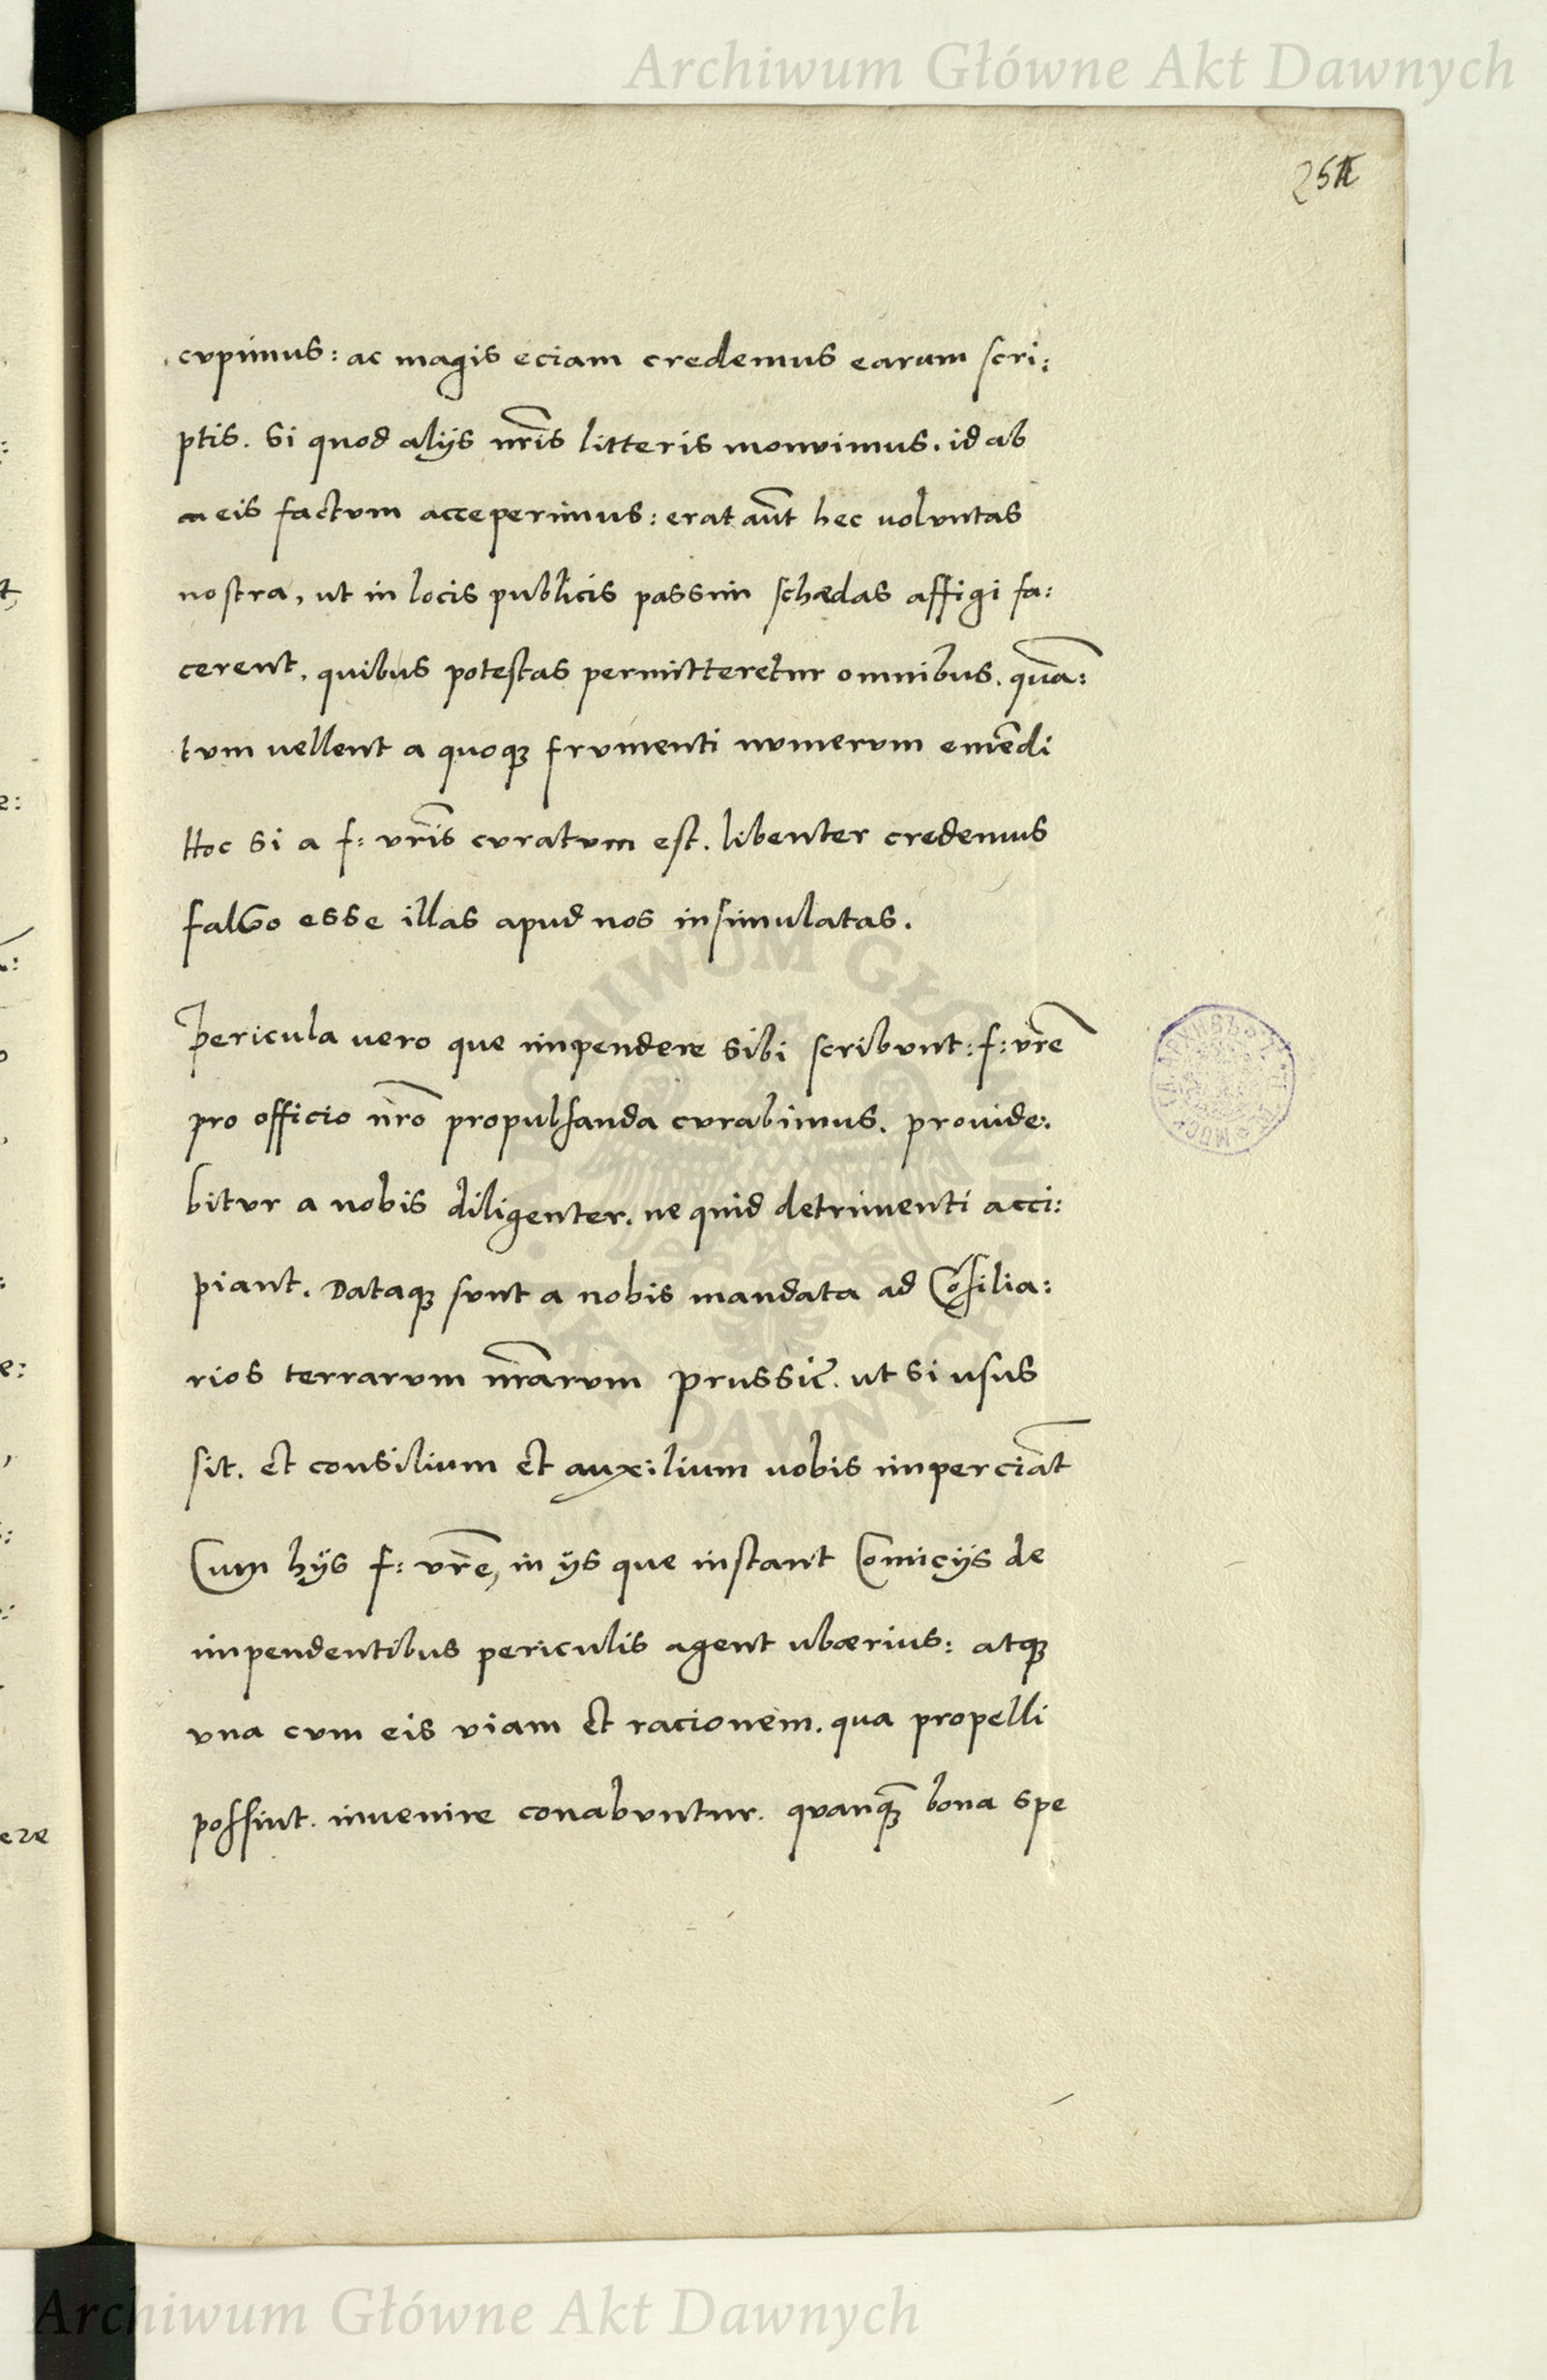 Archiwum Główne Akt Dawnych
cupimus: ac magis eciam credemus earum scri:
ptis. Si quod alijs nr̃is litteris monuimus. id ab
eis factum acceperimus: erat aũt hec uoluntas
nostra, ut in locis publicis passim schedas affigi fa:
cerent, quibus potestas permitteretur omnibus. quã:
tum uellent a quoqꝫ frumenti numerum emẽdi
Hoc si a f: vr̃is curatum est. libenter credemus
falso esse illas apud nos insimulatas.
Pericula uero que impendere sibi scribunt: f: vr̃e
pro officio nr̃o propulsanda curabimus. prouide:
bitur a nobis diligenter. ne quid detrimenti acci:
piant. Dataqꝫ sunt a nobis mandata ad Cõsilia:
rios terrarum nr̃arum Prussię. ut si usus
sit. et consilium et auxilium uobis imperciãt
Cum hijs f: vr̃e, in ijs que instant Comicijs de
impendentibus periculis agent uberius: atqꝫ
una cum eis viam et racionem. qua propelli
possint. inuenire conabuntur. quanqꝫ̃ bona spe
ARCHIWUM GŁÓWNE AKT DAWNYCH
Archiwum Główne Akt Dawnych